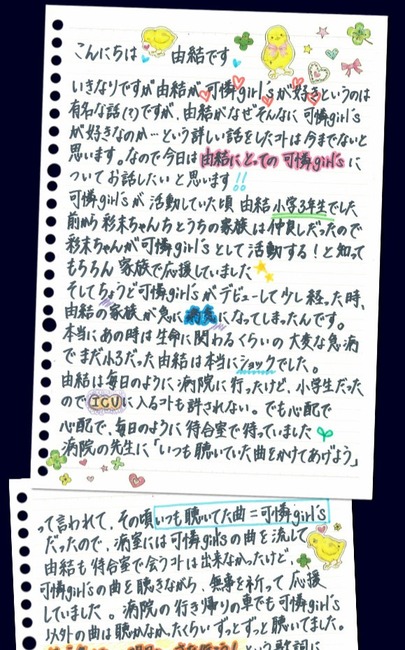 こんにちは 由結です
いきなりですが 由結が 可憐girl'sが好きというのは
有名な話(?)ですが、由結がなぜそんなに 可憐girl's
が好きなのか…という詳しい話をしたコトは今までないと
思います。なので今日は 由結にとっての 可憐girl's に
ついてお話したいと思います!!
可憐girl'sが 活動していた頃 由結 小学3年生でした
前から 彩未ちゃんちとうちの家族は 仲良しだったので
彩未ちゃんが可憐girl'sとして 活動する!と知って
もちろん 家族で応援していました
そしてちょうど可憐girl'sがデビューして少し 経った時、
由結の家族が急に病気になってしまったんです。
本当にあの時は 生命に関わるくらいの 大変な急病
でまだ小3だった由結は本当にショックでした。
由結は毎日のように 病院に 行ったけど、小学生だった
ので ICUに入るコトも許されない。でも心配で
心配で、毎日のように 待合室で待っていました
病院の先生に「いつも聴いていた曲をかけてあげよう」
って言われて、その頃いつも聴いてた曲=可憐girl's
だったので、病室には可憐girl'sの曲を流して
由結も待合室で会うコトは出来なかったけど、
可憐girl'sの曲を聴きながら、無事を祈って 応援
していました。病院の行き帰りの車でも可憐girl's
以外の曲は聴かなかったくらいずっとずっと聴いてました。
という歌詞に